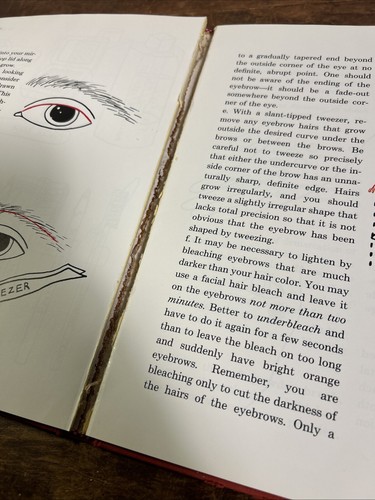 into your mir-
up lid along
grow.
looking
consider
drawn
This
EEZER
to a gradually tapered end beyond
the outside corner of the eye at no
definite, abrupt point. One should
not be aware of the ending of the
eyebrow—it should be a fade-out
somewhere beyond the outside cor-
ner of the eye.
e. With a slant-tipped tweezer, re-
move any eyebrow hairs that grow
outside the desired curve under the
brows or between the brows. Be
careful not to tweeze so precisely
that either the undercurve or the in-
side corner of the brow has an unna-
turally sharp, definite edge. Hairs
grow irregularly, and you should
tweeze a slightly irregular shape that
lacks total precision so that it is not
obvious that the eyebrow has been
shaped by tweezing.
f. It may be necessary to lighten by
bleaching eyebrows that are much
darker than your hair color. You may
use a facial hair bleach and leave it
on the eyebrows not more than two
minutes. Better to underbleach and
have to do it again for a few seconds
than to leave the bleach on too long
and suddenly have bright orange
eyebrows. Remember, you are
bleaching only to cut the darkness of
the hairs of the eyebrows. Only a